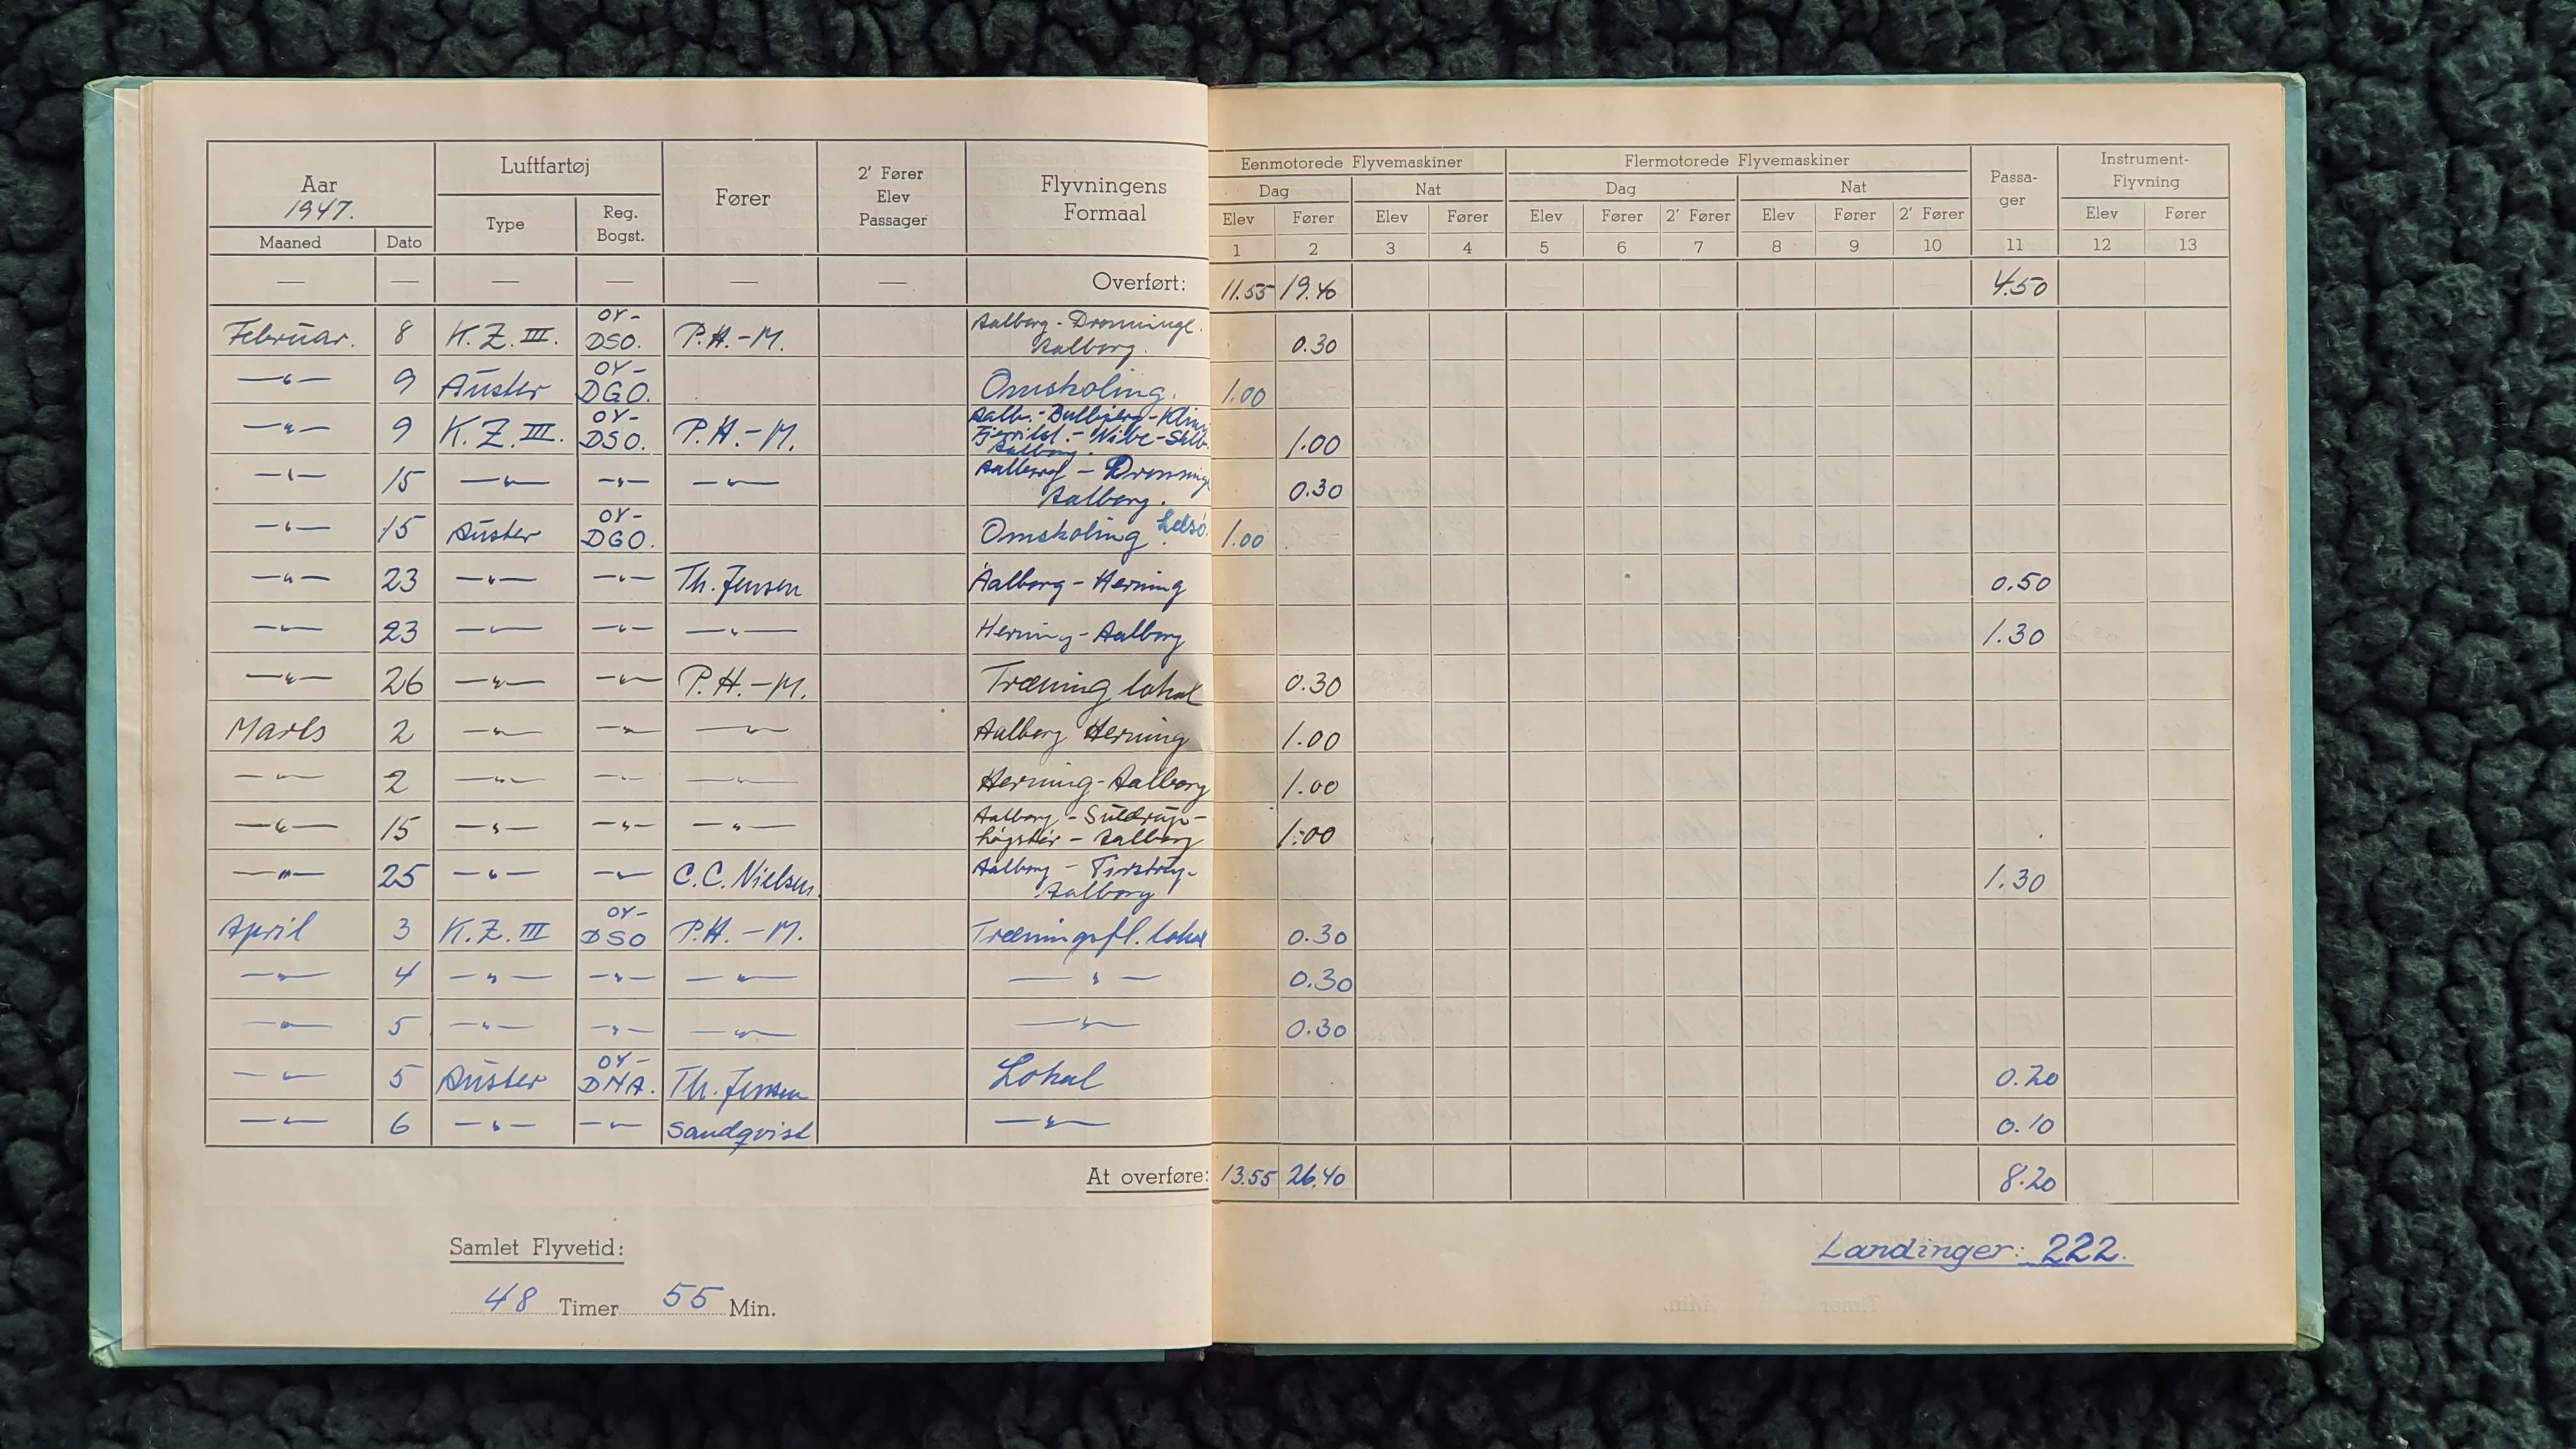 Aar 1947. Luftfartøj Fører 2' Fører Elev Passager Flyvningens Formaal Eenmotorede Flyvemaskiner Flermotorede Flyvemaskiner Passa-ger Instrument-Flyving
Dag Nat Dag Nat
Maaned Dato Type Reg. Bogst. Elev Fører Elev Fører Elev Fører 2' Fører Elev Fører 2' Fører Elev Fører
1 2 3 4 5 6 7 8 9 10 11 12 13
— — — — — — Overført: 11.55 19.40 4.50
Februar. 8 K.Z.III. OY-DSO. P.H.-M. Aalborg - Dronningl. Aalborg. 0.30
—"— 9 Auster OY-DGO. Omskoling. 1.00
—"— 9 K.Z.III. OY-DSO. P.H.-M. Aalb. - Bulbjerg - Klim Fjerritsl. - Nibe - Aalborg. 1.00
—"— 15 —"— —"— —"— Aalborg - Dronningl Aalborg. 0.30
—"— 15 Auster OY-DGO. Omskoling. 1.00
—"— 23 —"— —"— Th. Jensen Aalborg - Herning 0.50
—"— 23 —"— —"— —"— Herning - Aalborg 1.30
—"— 26 —"— —"— P.H.-M. Træning lokal 0.30
Marts 2 —"— —"— —"— Aalborg Herning 1.00
—"— 2 —"— —"— —"— Herning - Aalborg 1.00
—"— 15 —"— —"— —"— Aalborg - Suldrup - Løgstør - Aalborg 1.00
—"— 25 —"— —"— C.C. Nielsen. Aalborg - Tirstrup - Aalborg 1.30
April 3 K.Z.III OY-DSO P.H.-M. Træningsfl. lokal 0.30
—"— 4 —"— —"— —"— —"— 0.30
—"— 5 —"— —"— —"— —"— 0.30
—"— 5 Auster OY-DNA. Th. Jensen Lokal 0.20
—"— 6 —"— —"— Sandqvist —"— 0.10
At overføre: 13.55 26.40 8.20
Samlet Flyvetid:
48 Timer 55 Min.
Landinger: 222.